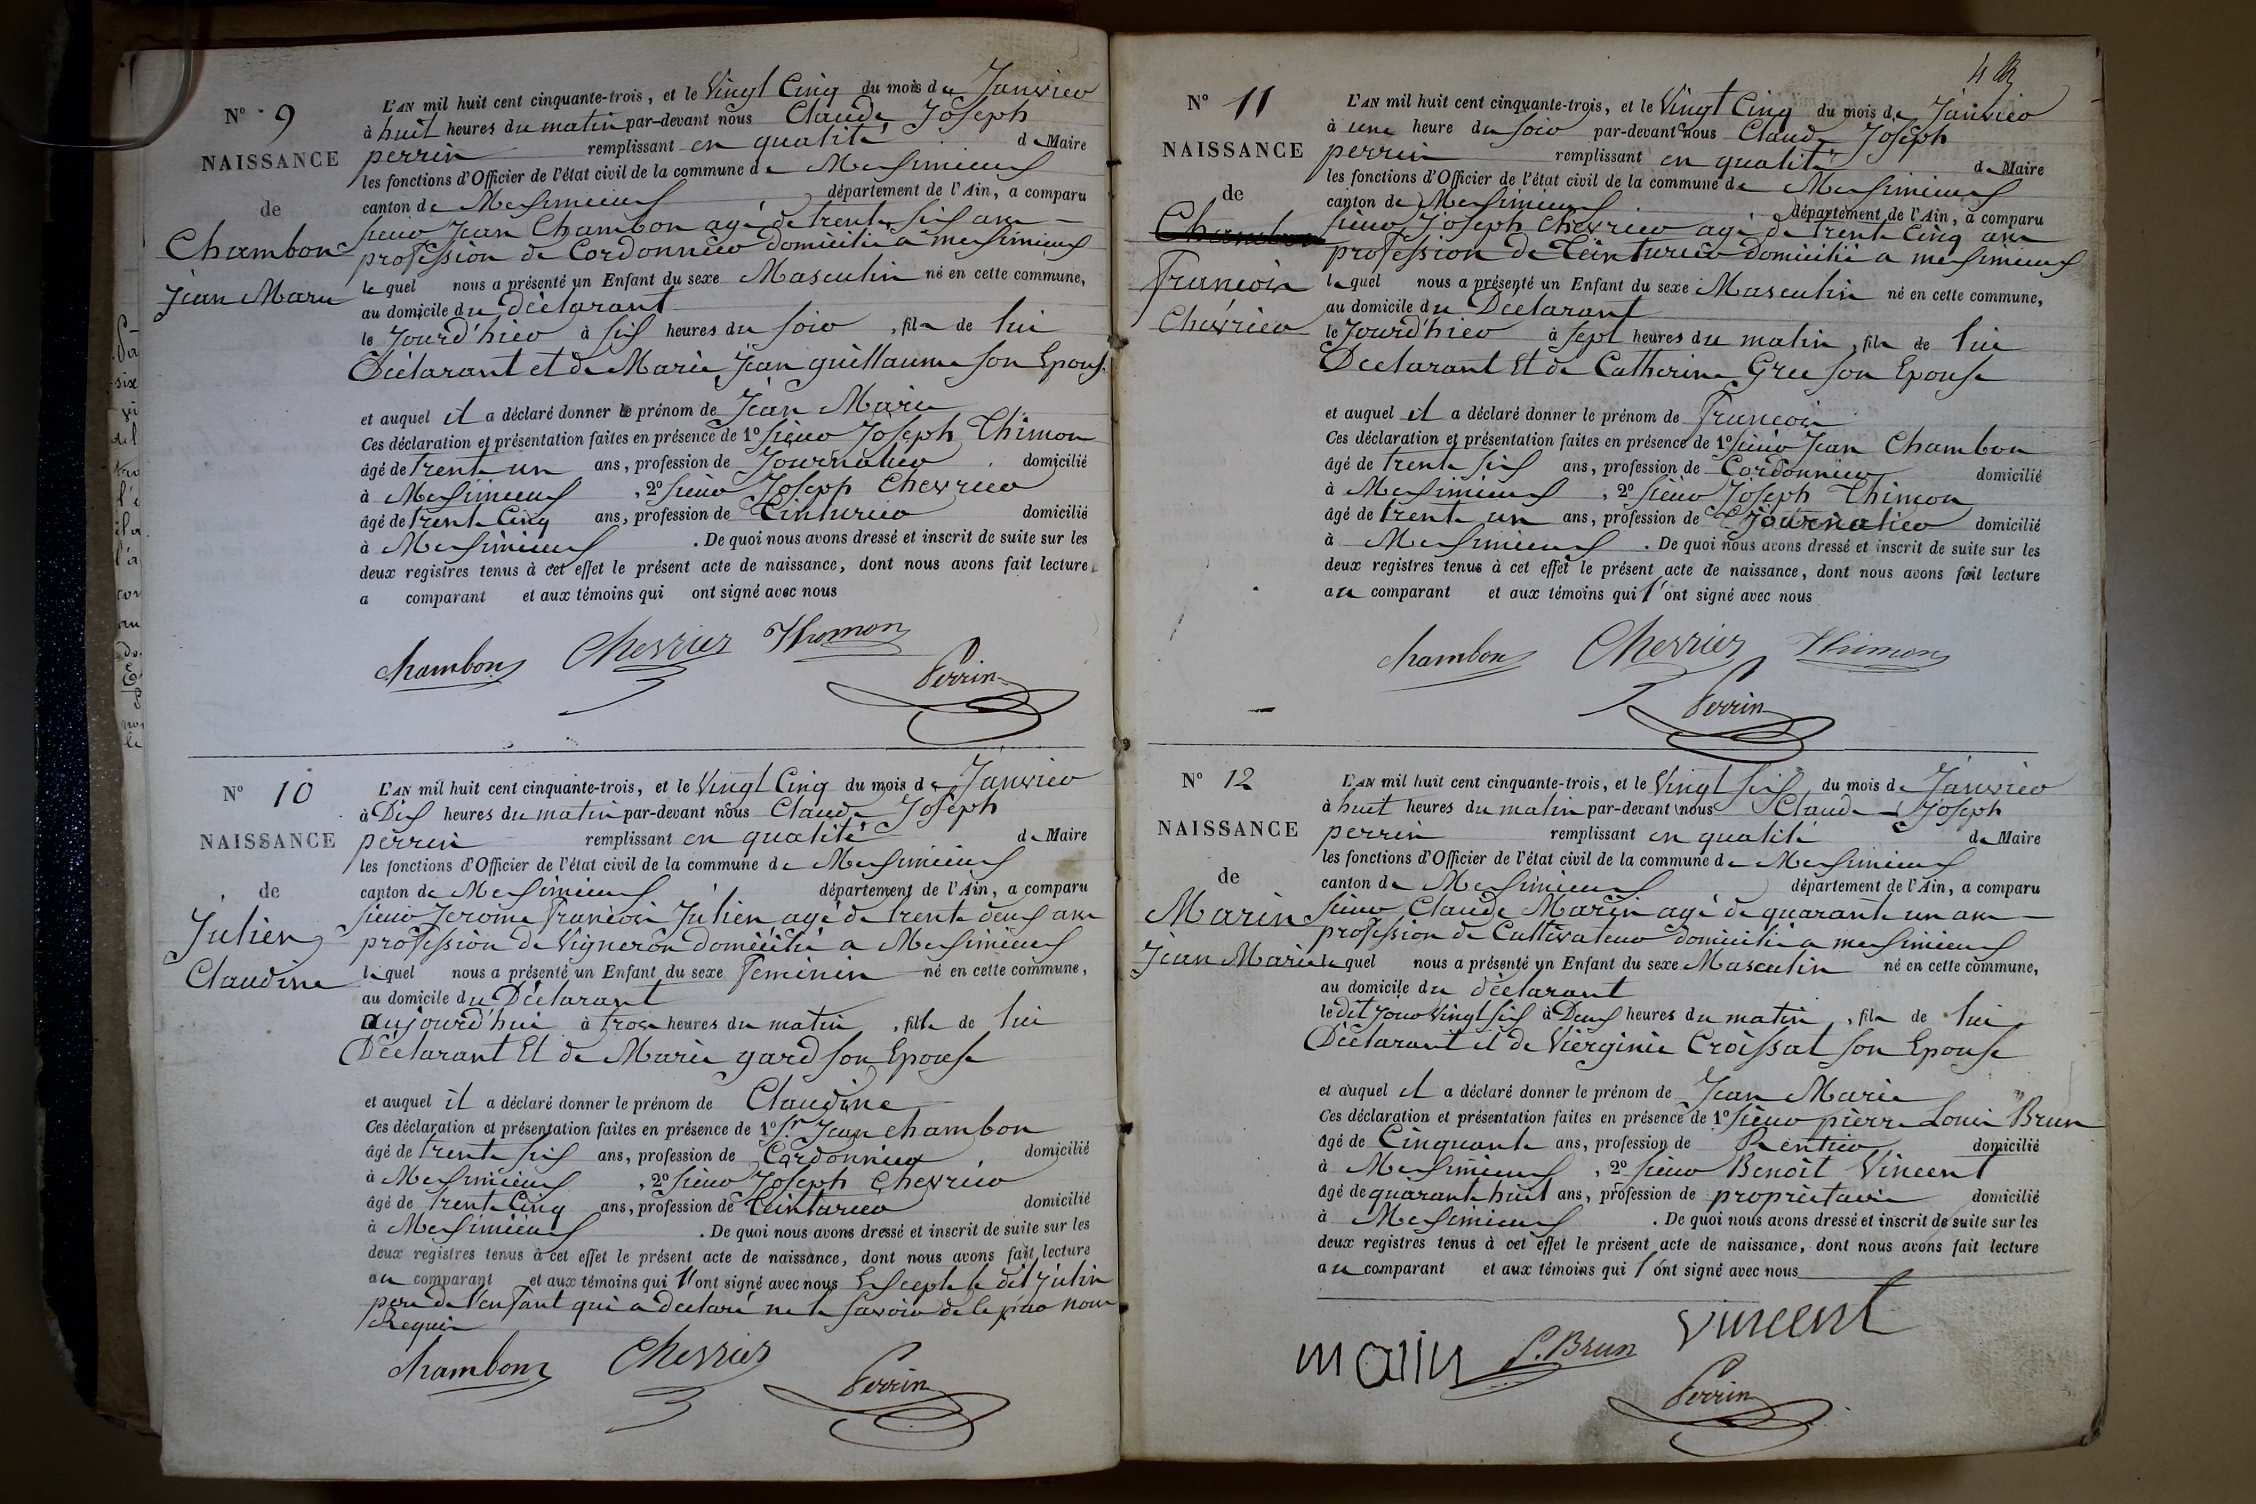 N° 9
NAISSANCE
de
Chambon
Jean Marie
L'AN mil huit cent cinquante-trois, et le Vingt Cinq du mois de Janvier
à huit heures du matin par-devant nous Claude Joseph
perrin remplissant en qualité de Maire
les fonctions d'Officier de l'état civil de la commune de Meximieux
canton de Meximieux département de l'Ain, a comparu
sieur Jean Chambon agé de trente six ans
profession de Cordonnier domicilié a meximieux
lequel nous a présenté un Enfant du sexe Masculin né en cette commune,
au domicile du déclarant
le Jourd'hier à six heures du soir, fils de lui
Déclarant et de Marie Jean guillaume son Epouse
et auquel il a déclaré donner le prénom de Jean Marie
Ces déclaration et présentation faites en présence de 1° sieur Joseph Thimon
âgé de trente un ans, profession de Journalier domicilié
à Meximieux, 2° sieur Joseph Chevrier
âgé de trente Cinq ans, profession de Tinturier domicilié
à Meximieux. De quoi nous avons dressé et inscrit de suite sur les
deux registres tenus à cet effet le présent acte de naissance, dont nous avons fait lecture
a comparant et aux témoins qui ont signé avec nous
Chambon Chevrier Thimon
Perrin
N° 10
NAISSANCE
de
Julien
Claudine
L'AN mil huit cent cinquante-trois, et le Vingt Cinq du mois de Janvier
à Dix heures du matin par-devant nous Claude Joseph
perrin remplissant en qualité de Maire
les fonctions d'Officier de l'état civil de la commune de Meximieux
canton de Meximieux département de l'Ain, a comparu
sieur Jerome François Julien agé de trente deux ans
profession de Vigneron domicilié a Meximieux
lequel nous a présenté un Enfant du sexe Feminin né en cette commune,
au domicile du Déclarant
aujourd'hui à trois heures du matin, fille de lui
Déclarant Et de Marie gard son Epouse
et auquel il a déclaré donner le prénom de Claudine
Ces déclaration et présentation faites en présence de 1° Sr Jean Chambon
âgé de trente six ans, profession de Cordonnier domicilié
à Meximieux, 2° sieur Joseph Chevrier
âgé de trente Cinq ans, profession de Teinturier domicilié
à Meximieux. De quoi nous avons dressé et inscrit de suite sur les
deux registres tenus à cet effet le présent acte de naissance, dont nous avons fait lecture
au comparant et aux témoins qui l'ont signé avec nous Excepté le dit Julien
pere de l'enfant qui a declaré ne le savoir de ce par nous
Requis
Chambon Chevrier
Perrin
N° 11
NAISSANCE
de
Francois
Chevrier
L'AN mil huit cent cinquante-trois, et le Vingt Cinq du mois de Janvier
à une heure du soir par-devant nous Claude Joseph
perrin remplissant en qualité de Maire
les fonctions d'Officier de l'état civil de la commune de Meximieux
canton de Meximieux département de l'Ain, a comparu
sieur Joseph Chevrier agé de trente Cinq ans
profession de Teinturier domicilié a meximieux
lequel nous a présenté un Enfant du sexe Masculin né en cette commune,
au domicile du Déclarant
le Jourd'hier à sept heures du matin, fils de lui
Declarant Et de Catherine Gree son Epouse
et auquel il a déclaré donner le prénom de Francois
Ces déclaration et présentation faites en présence de 1° sieur Jean Chambon
âgé de trente six ans, profession de Cordonnier domicilié
à Meximieux, 2° sieur Joseph Thimon
âgé de trente un ans, profession de Journalier domicilié
à Meximieux. De quoi nous avons dressé et inscrit de suite sur les
deux registres tenus à cet effet le présent acte de naissance, dont nous avons fait lecture
au comparant et aux témoins qui l'ont signé avec nous
Chambon Chevrier Thimon
Perrin
N° 12
NAISSANCE
de
Marin
Jean Marie
L'AN mil huit cent cinquante-trois, et le Vingt six du mois de Janvier
à huit heures du matin par-devant nous Claude Joseph
perrin remplissant en qualité de Maire
les fonctions d'Officier de l'état civil de la commune de Meximieux
canton de Meximieux département de l'Ain, a comparu
sieur Claude Marin agé de quarante un ans
profession de Cultivateur domicilié a meximieux
lequel nous a présenté un Enfant du sexe Masculin né en cette commune,
au domicile du déclarant
le dit jour Vingt six à Deux heures du matin, fils de lui
Déclarant et de Vierginie Croissat son Epouse
et auquel il a déclaré donner le prénom de Jean Marie
Ces déclaration et présentation faites en présence de 1° sieur pierre Louis Brun
âgé de Cinquante ans, profession de Rentier domicilié
à Meximieux, 2° sieur Benoit Vincent
âgé de quarante huit ans, profession de propriétaire domicilié
à Meximieux. De quoi nous avons dressé et inscrit de suite sur les
deux registres tenus à cet effet le présent acte de naissance, dont nous avons fait lecture
au comparant et aux témoins qui l'ont signé avec nous
Vincent
marin P. Brun
Perrin